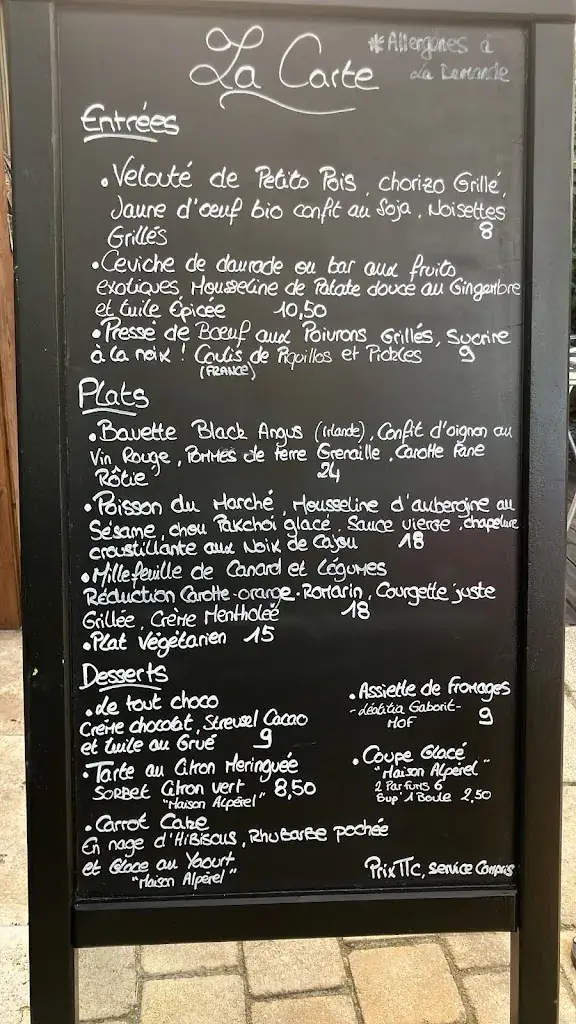 La Carte
*Allergènes à
la Demande
Entrées
• Velouté de Petits Pois, chorizo Grillé,
Jaune d'œuf bio confit au Soja, Noisettes
Grillés 8
• Ceviche de daurade ou bar aux fruits
exotiques Mousseline de Patate douce au Gingembre
et tuile Épicée 10,50
• Pressé de Bœuf aux Poivrons Grillés, Sucrine
à la noix ! Coulis de Piquillos et Pickles 9
(FRANCE)
Plats
• Bavette Black Angus (Irlande), Confit d'oignon au
Vin Rouge, Pommes de terre Grenaille, Carotte Fane
Rôtie 24
• Poisson du Marché, Mousseline d'aubergine au
Sésame, chou Pakchoi glacé, Sauce vierge, chapelure
croustillante aux Noix de Cajou 18
• Millefeuille de Canard et Légumes
Réduction Carotte-orange-Romarin, Courgette juste
Grillée, Crème Mentholée 18
• Plat Végétarien 15
Desserts
• Le tout choco
Crème chocolat, Streusel Cacao
et tuile au Grué 9
• Tarte au Citron Meringuée
SORBET Citron vert 8,50
"Maison Alpérel"
• Carrot Cake
En nage d'Hibiscus, Rhubarbe pochée
et Glace au Yaourt
"Maison Alpérel"
• Assiette de Fromages
- Léatitia Gaborit -
MOF 9
• Coupe Glacé
"Maison Alpérel"
2 Parfums 6
Sup 1 Boule 2,50
Prix TTC, service Compris